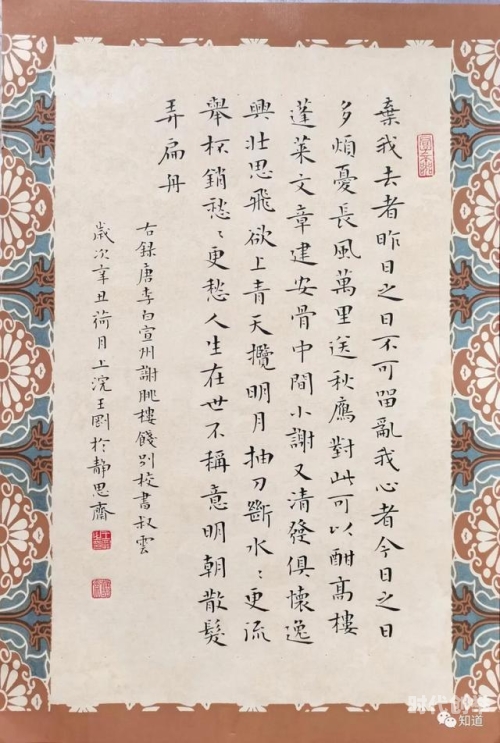 棄我去者昨日之日不可留亂我心者今日之日
多煩憂長風萬里送秋鷹對此可以酣高樓
蓬萊文章建安骨中間小謝又清發俱懷逸
興壯思飛欲上青天攬明月抽刀斷水〻更流
舉杯銷愁〻更愁人生在世不稱意明朝散髮
弄扁舟
右錄唐李白宣州謝朓樓餞別校書叔雲
歲次辛丑荷月上浣王剛於靜思齋
时代
知道